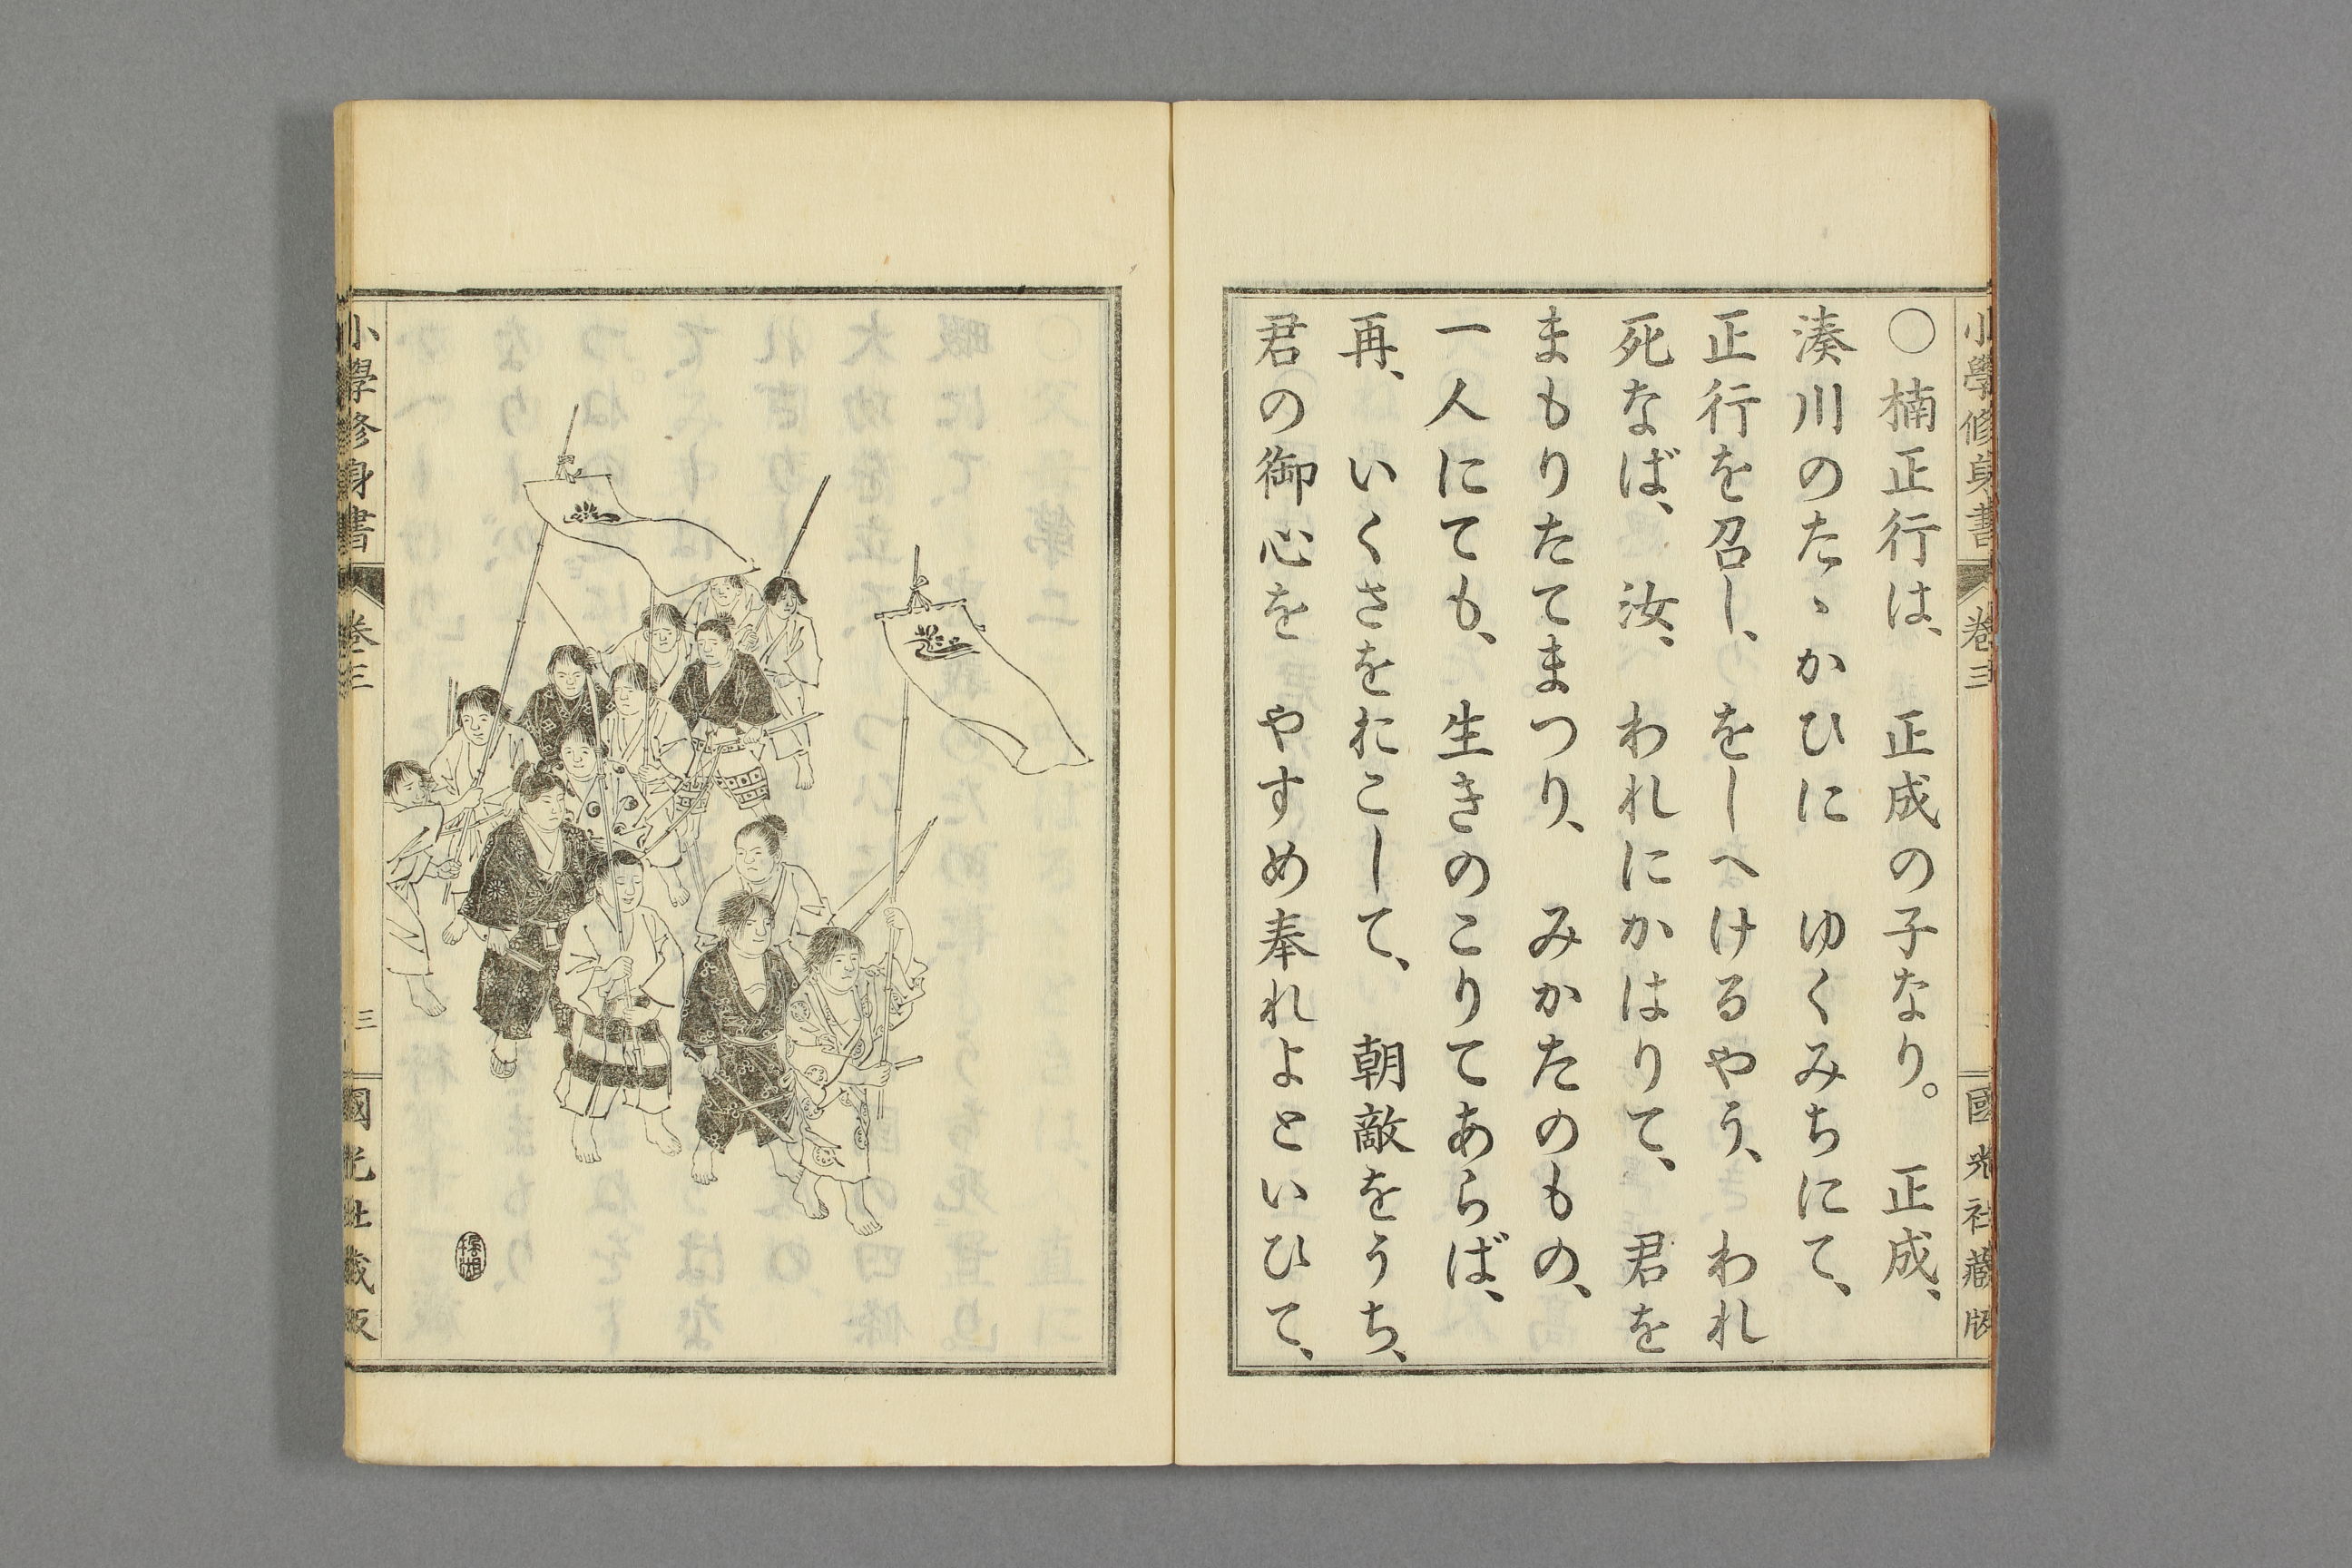 小學修身書 卷三 國光社藏版
○楠正行は、正成の子なり。正成、
湊川のたゝかひに ゆくみちにて、
正行を召し、をしへけるやう、われ
死なば、汝、われにかはりて、君を
まもりたてまつり、みかたのもの、
一人にても、生きのこりてあらば、
再、いくさをおこして、朝敵をうち、
君の御心を やすめ奉れよといひて、
小學修身書 卷三 三 國光社藏版